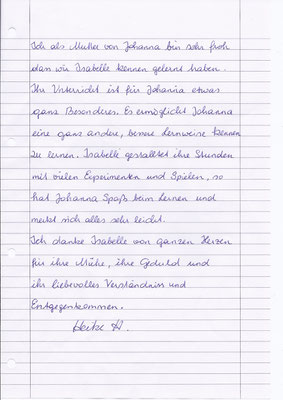 Ich als Mutter von Johanna bin sehr froh
dass wir Isabelle kennen gelernt haben.
Ihr Unterricht ist für Johanna etwas
ganz Besonderes. Es ermöglicht Johanna
eine ganz andere, bessere Lernweise kennen
zu lernen. Isabelle gestaltet ihre Stunden
mit vielen Experimenten und Spielen, so
hat Johanna Spaß beim Lernen und
merkt sich alles sehr leicht.
Ich danke Isabelle von ganzen Herzen
für ihre Mühe, ihre Geduld und
ihr liebevolles Verständniss und
Entgegenkommen.
Heike H.